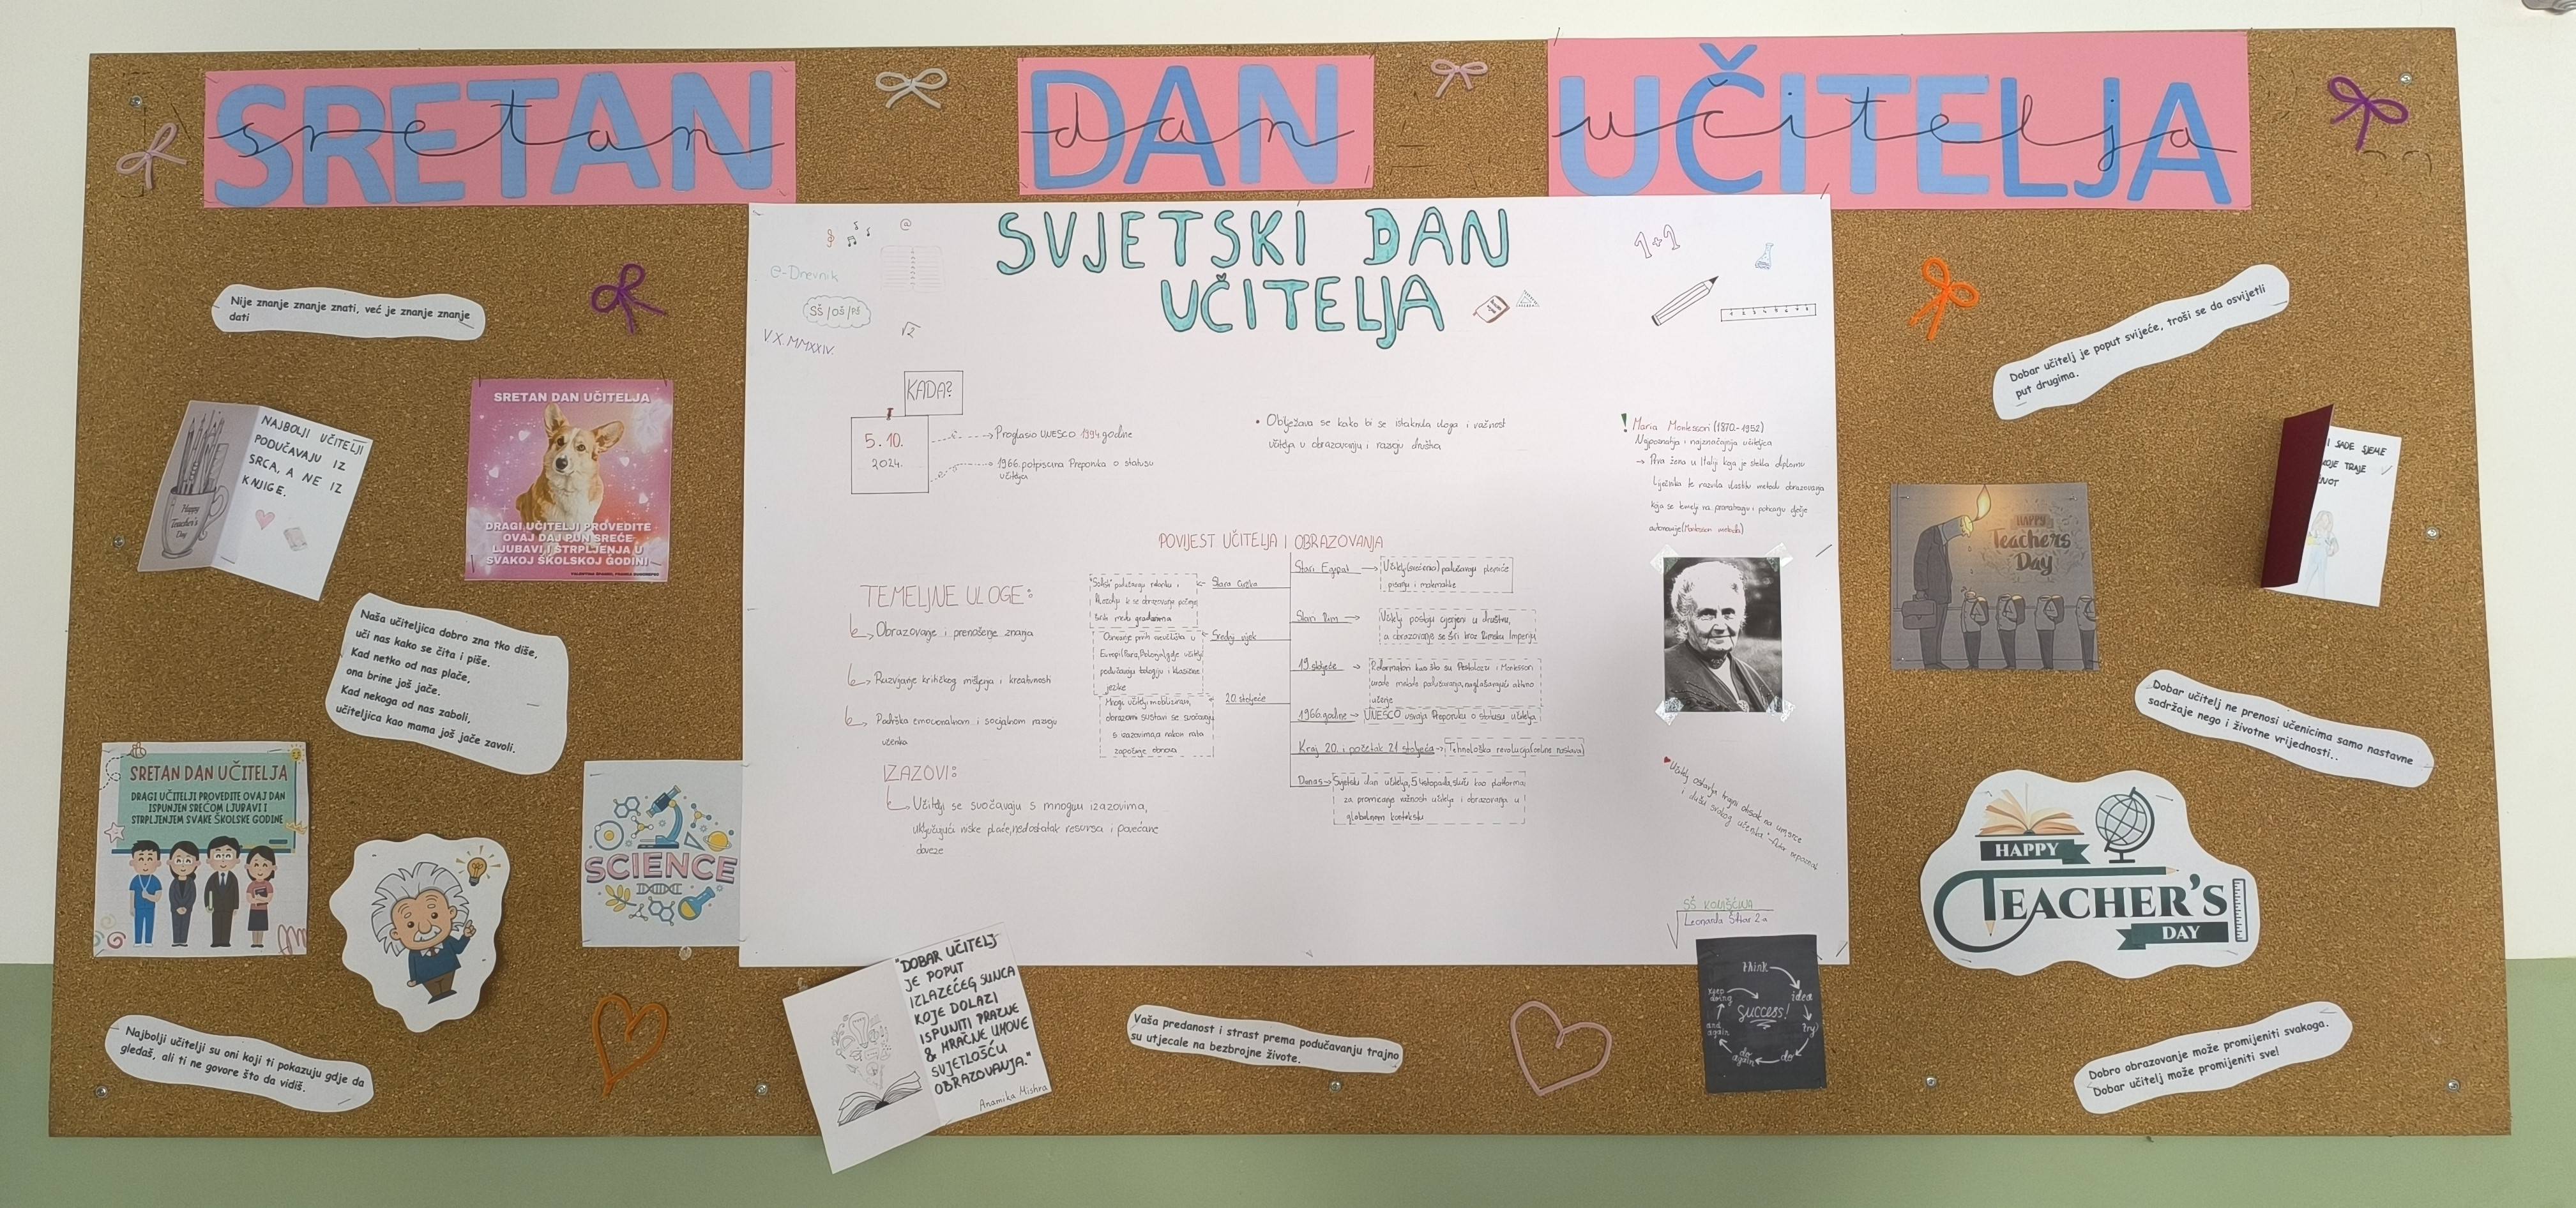 SRETAN DAN UČITELJA
sretan dan učitelja
SVJETSKI DAN
UČITELJA
@
e-Dnevnik
SŠ/OŠ/PŠ
√2
V.X.MMXXIV.
1+1
KADA?
5.10.
2024.
Proglasio UNESCO 1994.godine
1966.potpisana Preporuka o statusu
učitelja
• Obilježava se kako bi se istaknula uloga i važnost
učitelja u obrazovanju i razvoju društva
! Maria Montessori (1870.-1952)
Najpoznatija i najznačajnija učiteljica
→ Prva žena u Italiji koja je stekla diplomu
liječnika te razvila vlastitu metodu obrazovanja
koja se temelji na promatranju i poticanju dječje
autonomije(Montessori metoda)
POVIJEST UČITELJA I OBRAZOVANJA
Stari Egipat →
Učitelji(svećenici) podučavaju plemiće
pisanju i matematike
Stara Grčka
"Sofisti" podučavaju retoriku i
filozofiju te se obrazovanje počinje
širiti među građanima
Stari Rim →
Učitelji postaju cijenjeni u društvu,
a obrazovanje se širi kroz Rimsku Imperiju
Srednji vijek
Osnivanje prvih sveučilišta u
Europi(Pariz,Bologna),gdje učitelji
podučavaju teologiju i klasične
jezike
19 stoljeće →
Reformatori kao što su Pestalozzi i Montessori
uvode metode podučavanja,naglašavajući aktivno
učenje
20.stoljeće
Mnogi učitelji mobilizirani,
obrazovni sustavi se suočavaju
s izazovima,a nakon rata
započinje obnova
1966.godine → UNESCO usvaja Preporuku o statusu učitelja
Kraj 20. i početak 21 stoljeća → Tehnološka revolucija(online nastava)
Danas → Svjetski dan učitelja,5 listopada,služi kao platforma
za promicanje važnosti učitelja i obrazovanja u
globalnom kontekstu
TEMELJNE ULOGE:
Obrazovanje i prenošenje znanja
Razvijanje kritičkog mišljenja i kreativnosti
Podrška emocionalnom i socijalnom razvoju
učenika
IZAZOVI:
Učitelji se suočavaju s mnogim izazovima,
uključujući niske plaće,nedostatak resursa i povećane
obveze
"Učitelj ostavlja trajni otisak na um,srce
i dušu svakog učenika"-Autor nepoznat
SŠ KONJŠČINA
Leonarda 2.a
Nije znanje znanje znati, već je znanje znanje
dati
NAJBOLJI UČITELJI
PODUČAVAJU IZ
SRCA, A NE IZ
KNJIGE.
Happy
Teacher's
Day
SRETAN DAN UČITELJA
DRAGI UČITELJI PROVEDITE
OVAJ DAJ PUN SREĆE
LJUBAVI I STRPLJENJA U
SVAKOJ ŠKOLSKOJ GODINI
Naša učiteljica dobro zna tko diše,
uči nas kako se čita i piše.
Kad netko od nas plače,
ona brine još jače.
Kad nekoga od nas zaboli,
učiteljica kao mama još jače zavoli.
SRETAN DAN UČITELJA
DRAGI UČITELJI PROVEDITE OVAJ DAN
ISPUNJEN SREĆOM LJUBAVI I
STRPLJENJEM SVAKE ŠKOLSKE GODINE
SCIENCE
Najbolji učitelji su oni koji ti pokazuju gdje da
gledaš, ali ti ne govore što da vidiš.
"DOBAR UČITELJ
JE POPUT
IZLAZEĆEG SUNCA
KOJE DOLAZI
ISPUNITI PRAZNE
& MRAČNE UMOVE
SVJETLOŠĆU
OBRAZOVANJA."
Anamika Mishra
Vaša predanost i strast prema podučavanju trajno
su utjecale na bezbrojne živote.
think
idea
try
do
do
again
and
again
keep
doing
SUCCESS!
Dobar učitelj je poput svijeće, troši se da osvijetli
put drugima.
I SADE SJEME
KOJE TRAJE
HAPPY
Teachers
Day
Dobar učitelj ne prenosi učenicima samo nastavne
sadržaje nego i životne vrijednosti..
HAPPY
TEACHER'S
DAY
Dobro obrazovanje može promijeniti svakoga.
Dobar učitelj može promijeniti sve!